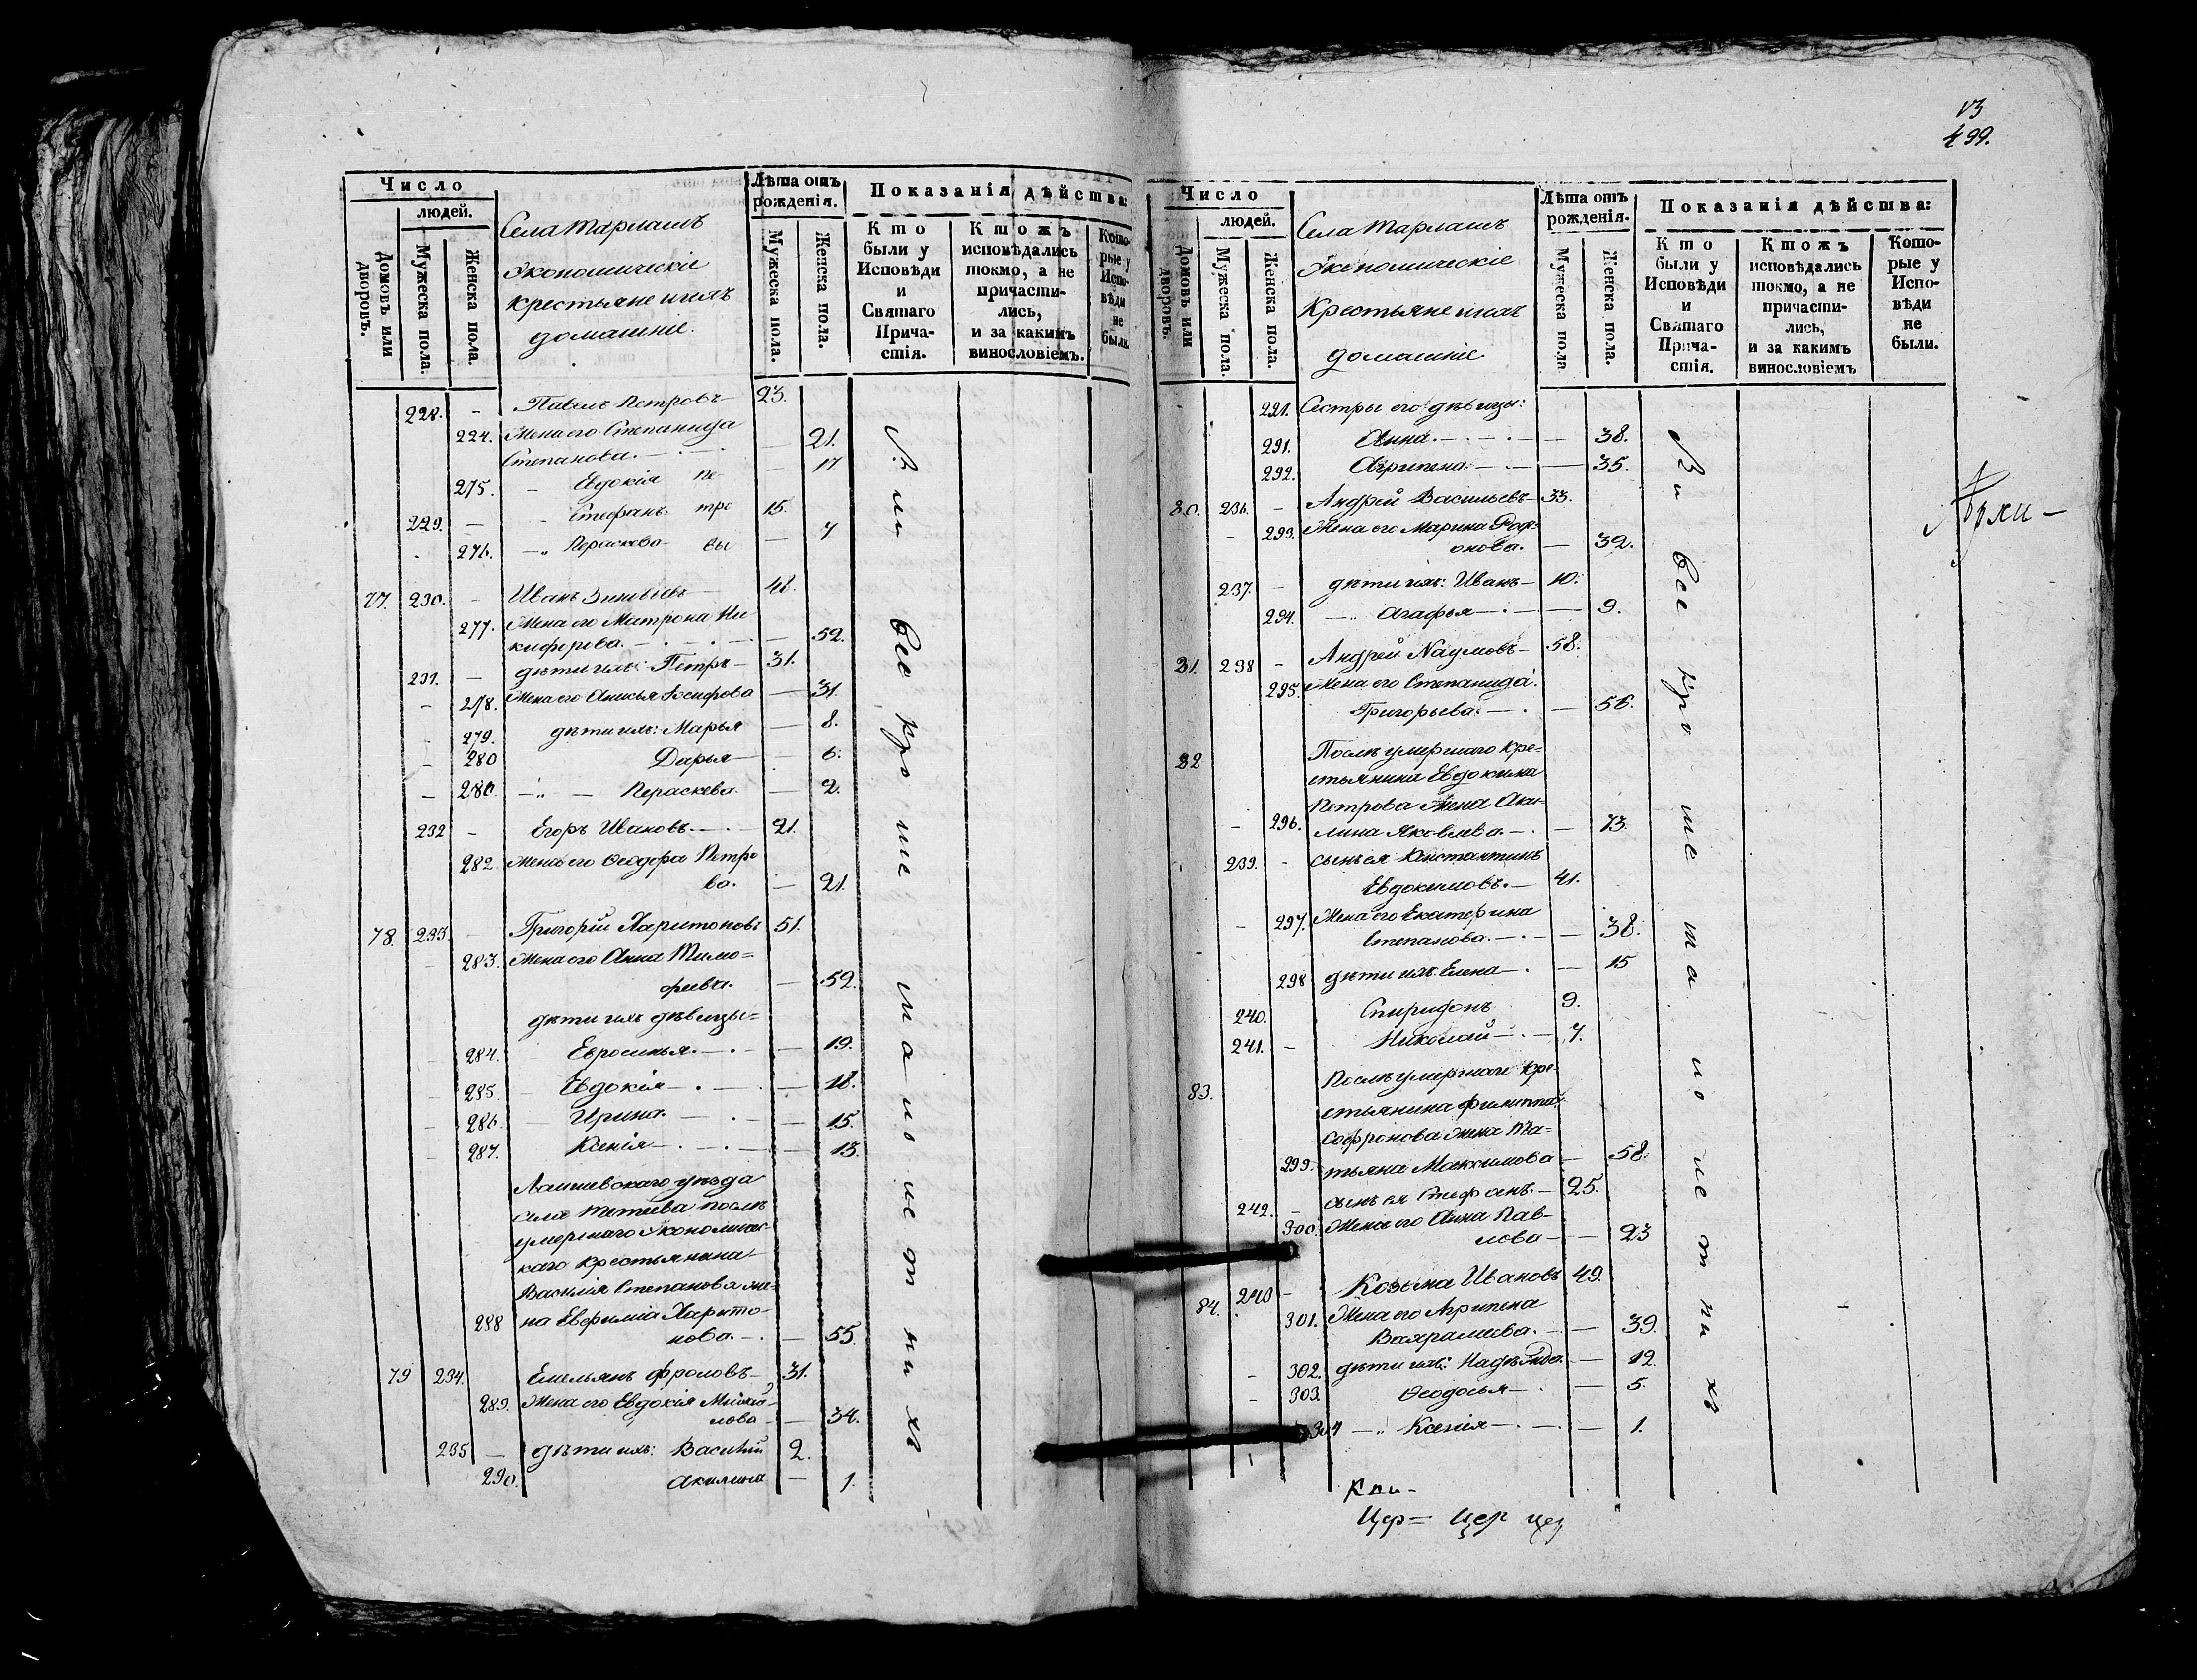 Число
людей.
Домовъ или дворовъ.
Мужеска пола.
Женска пола.
Села Тарлашъ
Экономическіе
крестьяне и ихъ
домашніе.
Лѣта отъ рожденія.
Мужеска пола.
Женска пола.
Показанія дѣйства:
Кто были у Исповѣди и Святаго Прича-стія.
Ктожъ исповѣдались токмо, а не причасти-лись, и за какимъ винословіемъ.
Кото-рые у Испо-вѣди не были.
228. - Павелъ Петровъ 23.
274. Жена его Степанида
Степанова. - 21.
275. - Евдокія Пе- 17
229. - Стефанъ тро 15.
276. -„ Пераскева вы - 7
77. 230. - Иванъ Зиновіевъ 48.
277. Жена его Матрона Ни
кифорова. - 52.
231. - дѣти ихъ: Петръ - 31.
278. Жена его Анисья Іосифова - 31.
279. дѣти ихъ: Марья - 8.
280 Дарья - 6.
280. -„ - Пераскева - 2.
232 - Егоръ Ивановъ. - 21.
282 Жена его Ѳеодора Петро
ва. - 21.
78. 233 - Григорій Харитоновъ 51.
283. Жена его Анна Тимо=
феева. - 52.
дѣти ихъ дѣвицы=
284. Евросинья. - 19.
285. - Евдокія - 18.
286. - Ирина. - 15.
287. Ксенія - 13.
Лаишевскаго уѣзда
села Тетеева послѣ
умершаго Экономичес
каго крестьянина
Василія Степанова же-
288 на Евфимія Харито-
нова. - 55.
79 234. Емельянъ Фроловъ - 31.
289. Жена его Евдокія Михай-
лова - 34.
235 - дѣти ихъ: Василій 2.
290. Акилина - 1.
Вси все кро ме ма ло ле т ни хъ
73
499.
Число
людей.
Домовъ или дворовъ.
Мужеска пола.
Женска пола.
Села Тарлашъ
Экономическіе
Крестьяне и ихъ
домашніе
Лѣта отъ рожденія.
Мужеска пола
Женска пола.
Показанія дѣйства:
Кто были у Исповѣди и Святаго Прича-стія.
Ктожъ исповѣдались токмо, а не причасти-лись, и за какимъ винословіемъ
Кото-рые у Испо-вѣди не были.
221. Сестры его дѣвицы:
291. Анна. - 38.
292. Агрипена. - 35.
80. 236. - Андрей Васильевъ - 33.
293. Жена его Марина Роди-
онова. - 32.
237. - дѣти ихъ: Иванъ - 10.
294. -„ Агафья - 9.
81. 238 - Андрей Наумовъ - 58.
295. Жена его Степанида
Григорьева. - 56.
82 Послѣ умершаго кре-
стьянина Евдокима
Петрова жена Аки-
296. лина Яковлева. - 73.
239. - сынъ ея Константинъ
Евдокимовъ. - 41.
297. Жена его Екатерина
Степанова. - 38.
298 дѣти ихъ: Елена - 15
240. Спиридонъ 9.
241. - Николай - 7.
83. Послѣ умершаго кре-
стьянина Филиппа
Софронова жена Та=
299. тьяна Максимова - 58.
242. - сынъ ея Стефанъ. - 25.
300. Жена его Анна Пав-
лова - 23
84. 243 - Козьма Ивановъ 49.
301. Жена его Агрипена
Вахрамеева. - 39.
302. дѣти ихъ: Надежда. - 12.
303. Ѳеодосья - 5.
304 -„ Ксенія - 1.
Вси все кро ме ма ло ле т ни хъ
Цер= цер